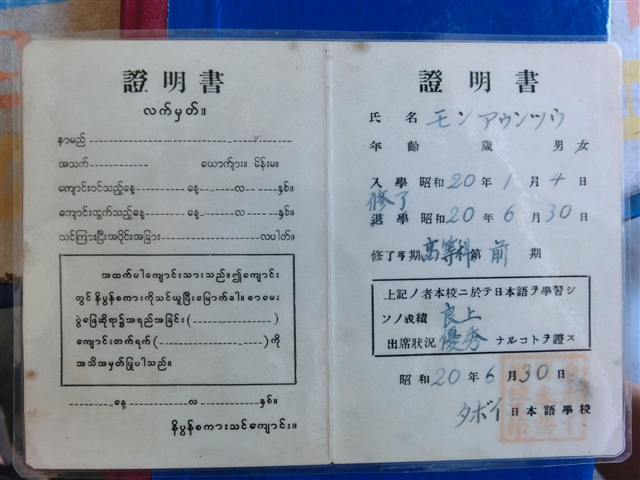 證明書
လက်မှတ်။
နာမည်
အသက် ယောက်ျား။ မိန်းမ။
ကျောင်းဝင်သည့်နေ့ နေ့ လ နှစ်။
ကျောင်းထွက်သည့်နေ့ နေ့ လ နှစ်။
သင်ကြားပြီးအပိုင်းအခြား လပါတ်။
အထက်ပါကျောင်းသားသည်။ဤကျောင်း
တွင် နိပွန်စကားကိုသင်ယူပြီးမြောက်ခါ။ စာမေး
ပွဲဖြေဆိုရာ၌အရည်အခြင်း ( )
ကျောင်းတက်ရက် ( ) ကို
အသိအမှတ်ပြုပါသည်။
နေ့ လ နှစ်။
နိပွန်စကားသင်ကျောင်း။
證明書
氏名 モンアウンツウ
年齡 歲 男女
入學 昭和20年1月4日
修了
退學 昭和20年6月30日
修了學期 高等科第前期
上記ノ者本校ニ於テ日本語ヲ學習シ
ソノ成績 良上
出席狀況 優秀 ナルコトヲ證ス
昭和20年6月30日
タボイ日本語學校